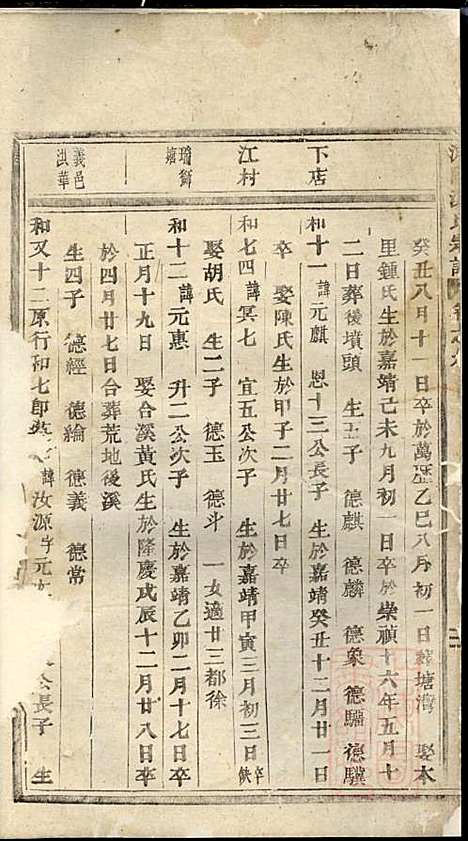 癸丑八月十一日卒於萬曆乙巳八月初一日葬塘灣 娶本
里鍾氏生於嘉靖己未九月初一日卒於崇禎十六年五月十
二日葬後墳頭 生五子 德麒 德麟 德象 德驌 德驥
下店
和十一諱元麒 恩十三公長子 生於嘉靖癸丑十二月廿一日
卒 娶陳氏生於甲子二月廿七日卒
江村
和七四諱冥七 宜五公次子 生於嘉靖甲寅三月初三日卒缺
娶胡氏 生二子 德玉 德斗 一女適廿三都徐
瑞獅塘
和十二諱元惠 升二公次子 生於嘉靖乙卯二月十七日卒
正月十九日 娶合溪黃氏生於隆慶戊辰十二月廿八日卒
於四月廿七日合葬荒地後溪
生四子 德經 德綸 德義 德常
義邑洪華
和又十二原行和七郎 諱汝源字元 公長子 生